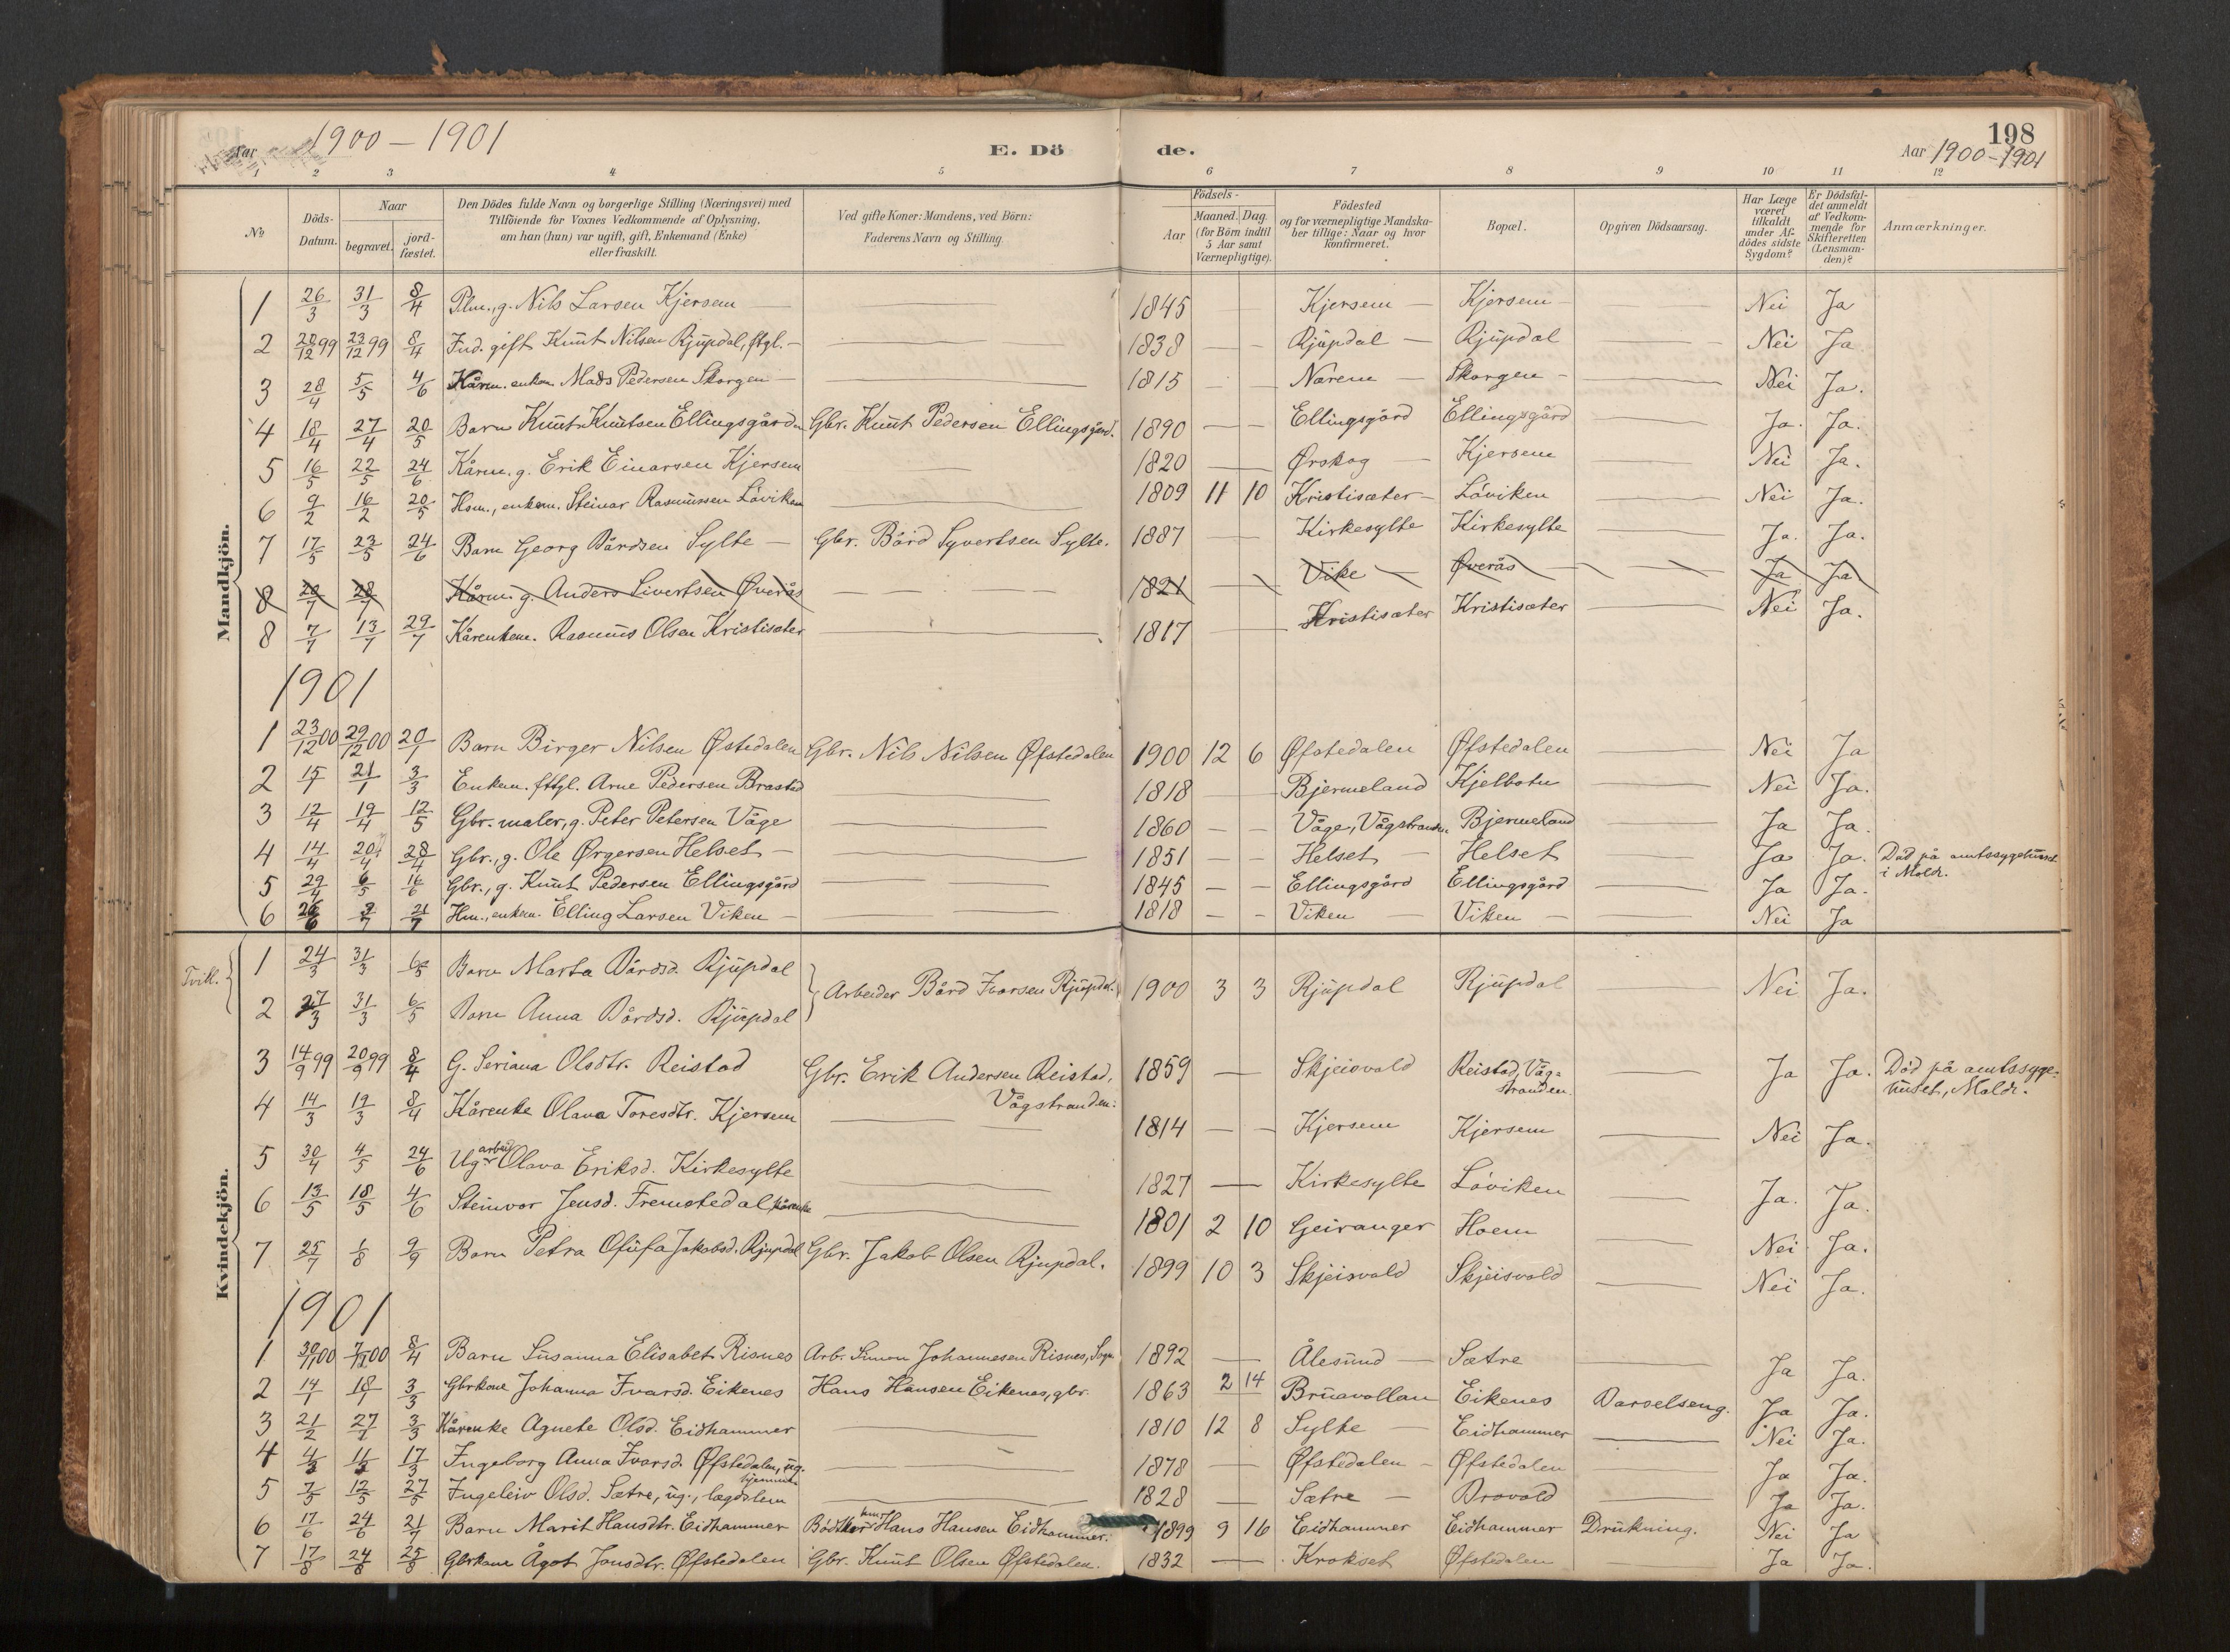 Aar 1900 – 1901
E. Dö de.
198
Aar 1900–1901
1 2 3 4 5 6 7 8 9 10 11 12
No
Döds-Datum.
Naar
begravet.
jord-fæstet.
Den Dödes fulde Navn og borgerlige Stilling (Næringsvei) med
Tilföiende for Voxnes Vedkommende af Oplysning,
om han (hun) var ugift, gift, Enkemand (Enke)
eller fraskilt.
Ved gifte Koner: Mandens, ved Börn:
Faderens Navn og Stilling.
Födsels-
Aar
Maaned. Dag.
(for Börn indtil
5 Aar samt
Værnepligtige).
Födested
og for værnepligtige Mandska-
ber tillige: Naar og hvor
konfirmeret.
Bopæl.
Opgiven Dödsaarsag.
Har Læge
været
tilkaldt
under Af-
dödes sidste
Sygdom?
Er Dödsfal-
det anmeldt
af Vedkom-
mende for
Skifteretten
(Lensman-
den)?
Anmærkninger.
Mandkjön.
1 26/3 31/3 8/4 Plm., g. Nils Larsen Kjersem — 1845 — Kjersem — Kjersem — Nei Ja
2 20/12 99 23/12 99 8/4 Ind. gift Knut Nilsen Rjupdal, ftgl. — 1838 — Rjupdal — Rjupdal — Nei Ja
3 28/4 5/5 4/6 Kårm. enkem. Mads Pedersen Skorgen — 1815 — Narem — Skorgen — Nei Ja.
4 18/4 27/4 20/5 Barn Knut Knutsen Ellingsgård Gbr. Knut Pedersen Ellingsgård. 1890 — Ellingsgård Ellingsgård — Ja. Ja.
5 16/5 22/5 24/6 Kårm. g. Erik Einarsen Kjersem — 1820 — Ørskog — Kjersem — Nei Ja.
6 9/2 16/2 20/5 Hsm., enkem. Steinar Rasmussen Löviken — 1809 11 10 Kristisæter — Löviken — Nei Ja.
7 17/5 23/5 24/6 Barn Georg Bårdsen Sylte — Gbr. Bård Syvertsen Sylte. 1887 — Kirkesylte Kirkesylte — Ja. Ja.
8 20/7 28/7 Kårm. g. Anders Sivertsen Øverås — 1821 — Vike — Øverås — Ja Ja
8 7/7 13/7 29/7 Kårenkem. Rasmus Olsen Kristisæter — 1817 — Kristisæter Kristisæter — Nei Ja.
1901
1 23/12 00 29/12 00 20/1 Barn Birger Nilsen Øfstedalen Gbr. Nils Nilsen Øfstedalen 1900 12 6 Øfstedalen Øfstedalen — Nei Ja
2 15/1 21/1 3/3 Enkem. fttgl. Arne Pedersen Brastad — 1818 — Bjermeland Kjelbotn — Nei Ja.
3 12/4 19/4 12/5 Gbr. maler, g. Peter Petersen Våge — 1860 — Våge, Vågstranden. Bjermeland — Ja Ja.
4 14/4 20/4 28/4 Gbr., g. Ole Ørgersen Helset — 1851 — Helset — Helset — Ja Ja. Död på amtssygehuset
i Molde.
5 29/4 6/5 16/6 Gbr., g. Knut Pedersen Ellingsgård — 1845 — Ellingsgård Ellingsgård — Ja Ja.
6 26/6 2/7 21/7 Hm., enkem. Elling Larsen Viken — 1818 — Viken — Viken — Nei Ja
Kvindekjön.
Tvill.
1 24/3 31/3 6/5 Barn Marta Bårdsd. Rjupdal
Arbeider Bård Ivarsen Rjupdal. 1900 3 3 Rjupdal Rjupdal — Nei Ja.
2 27/3 31/3 6/5 Barn Anna Bårdsd. Rjupdal
3 14/9 99 20/9 99 8/4 G. Seriana Olsdtr. Reistad Gbr. Erik Andersen Reistad,
Vågstranden. 1859 — Skjeisvold Reistad, Våg-
stranden. — Ja Ja. Död på amtssyge-
huset, Molde.
4 14/3 19/3 8/4 Kårenke Olava Toresdtr. Kjersem — 1814 — Kjersem Kjersem — Nei Ja.
5 30/4 4/5 24/6 Ug. arbeid. Olava Eriksd. Kirkesylte — 1827 — Kirkesylte Löviken — Ja. Ja.
6 13/5 18/5 4/6 Steinvor Jensd. Fremstedal, kårenke — 1801 2 10 Geiranger Hoem — Nei Ja.
7 25/7 1/8 9/9 Barn Petra Olufa Jakobsd. Rjupdal Gbr. Jakob Olsen Rjupdal. 1899 10 3 Skjeisvold Skjeisvold — Nei Ja.
1901
1 30/11 00 7/12 00 8/4 Barn Susanna Elisabet Risnes Arb. Simon Johannesen Risnes, Sogn 1892 — Ålesund — Sætre — Ja Ja.
2 14/1 18/1 3/3 Gbrkone Johanna Ivarsd. Eikenes Hans Hansen Eikenes, gbr. 1863 2 14 Bruavollan Eikenes Barselseng. Ja Ja.
3 21/2 27/2 3/3 Kårenke Agnete Olsd. Eidhammer — 1810 12 8 Sylte — Eidhammer — Nei Ja.
4 4/3 11/3 17/3 Ingeborg Anna Ivarsd. Øfstedalen, ug.
hjemme — 1878 — Øfstedalen — Øfstedalen — Ja Ja.
5 7/5 12/5 27/5 Ingeleiv Olsd. Sætre, ug., lægdslem — 1828 — Sætre — Brovold — Ja Ja.
6 17/6 24/6 21/7 Barn Marit Hansdtr. Eidhammer Bödker hm. Hans Hansen Eidhammer. 1899 9 16 Eidhammer Eidhammer Drukning. Nei Ja
7 17/8 24/8 25/8 Gbrkone Ågot Jonsdtr. Øfstedalen Gbr. Knut Olsen Øfstedalen. 1832 — Krokset Øfstedalen — Ja Ja.